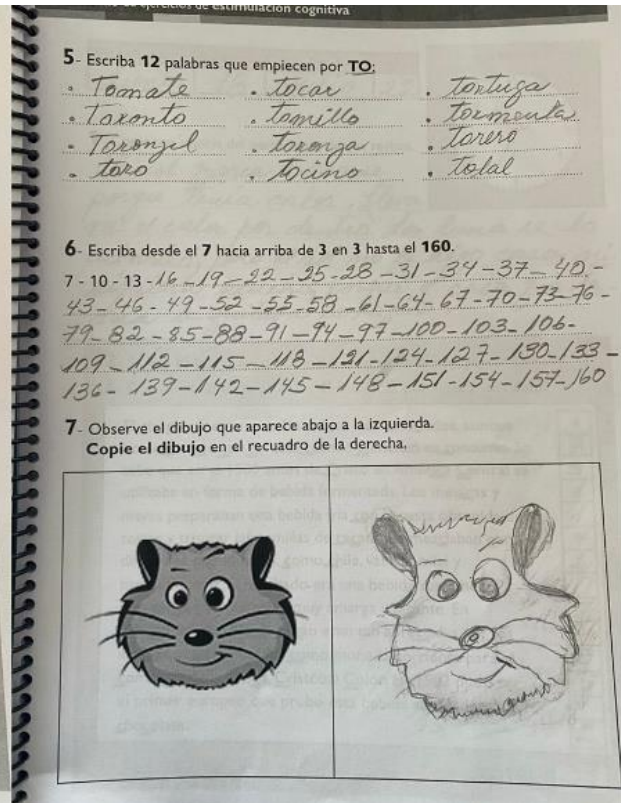 de ejercicios de estimulación cognitiva
5- Escriba 12 palabras que empiecen por TO:
• Tomate • tocar • tortuga
• Toronto • tomillo • tormenta
• Toronjil • toronja • torero
• toro • tocino • total
6- Escriba desde el 7 hacia arriba de 3 en 3 hasta el 160.
7 - 10 - 13 - 16 - 19 - 22 - 25 - 28 - 31 - 34 - 37 - 40 -
43 - 46 - 49 - 52 - 55 - 58 - 61 - 64 - 67 - 70 - 73 - 76 -
79 - 82 - 85 - 88 - 91 - 94 - 97 - 100 - 103 - 106 -
109 - 112 - 115 - 118 - 121 - 124 - 127 - 130 - 133 -
136 - 139 - 142 - 145 - 148 - 151 - 154 - 157 - 160
7- Observe el dibujo que aparece abajo a la izquierda.
Copie el dibujo en el recuadro de la derecha.